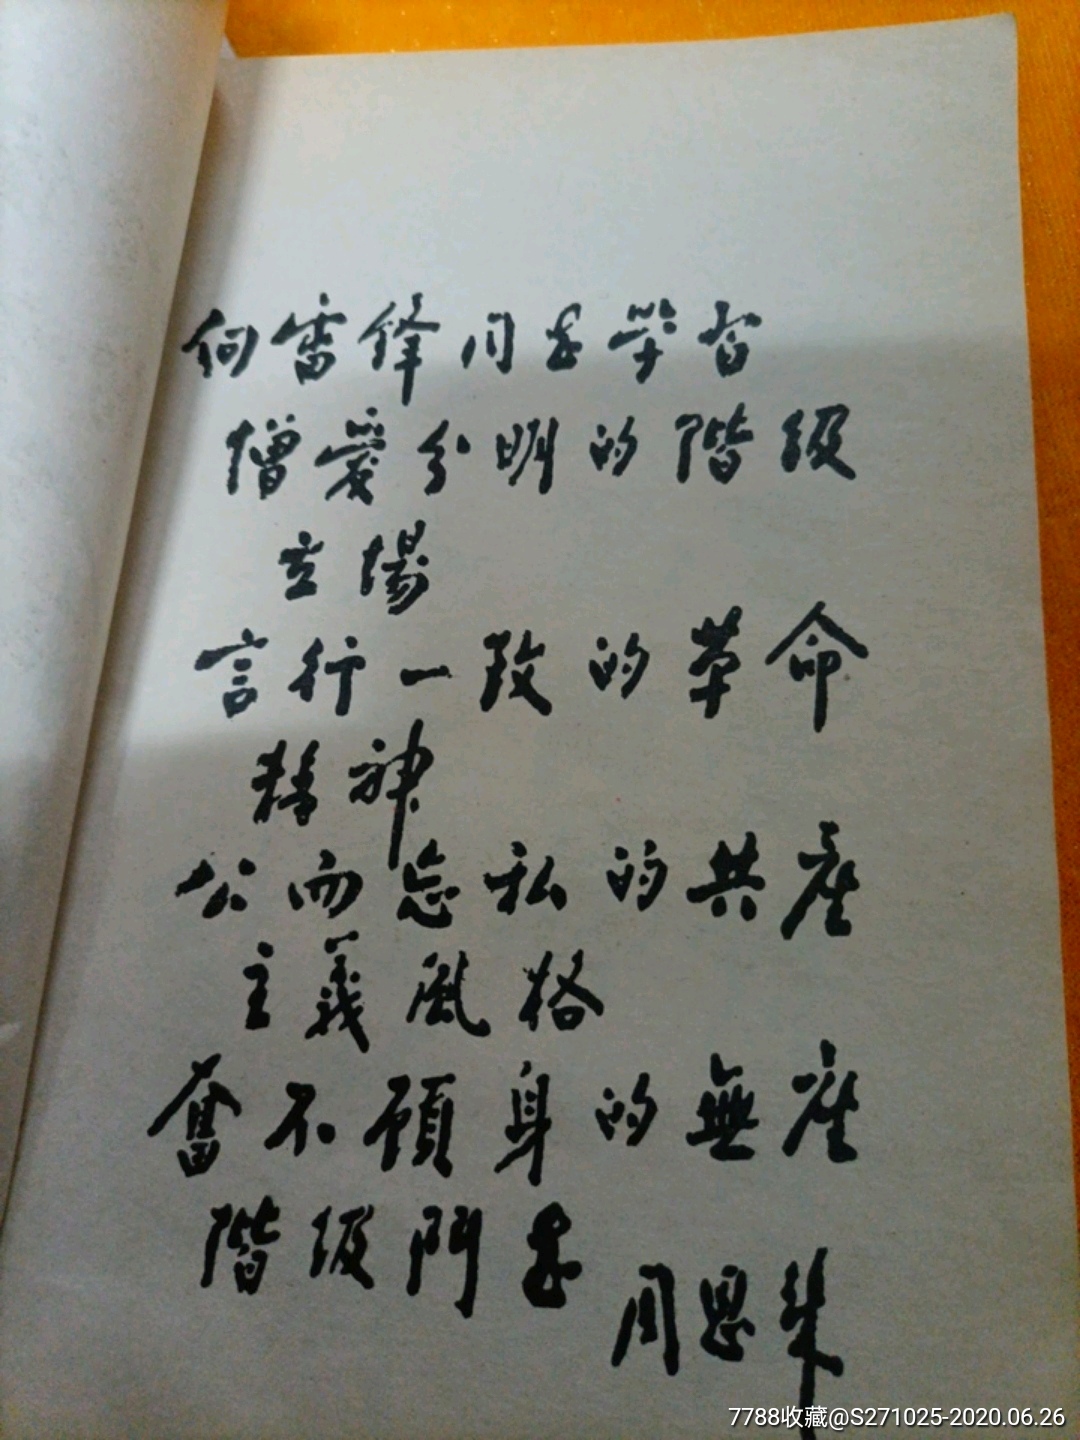 向雷锋同志学習
憎愛分明的階級
立場
言行一致的革命
精神
公而忘私的共產
主義風格
奮不顧身的無產
階級鬥志
周恩来
7788收藏@S271025-2020.06.26